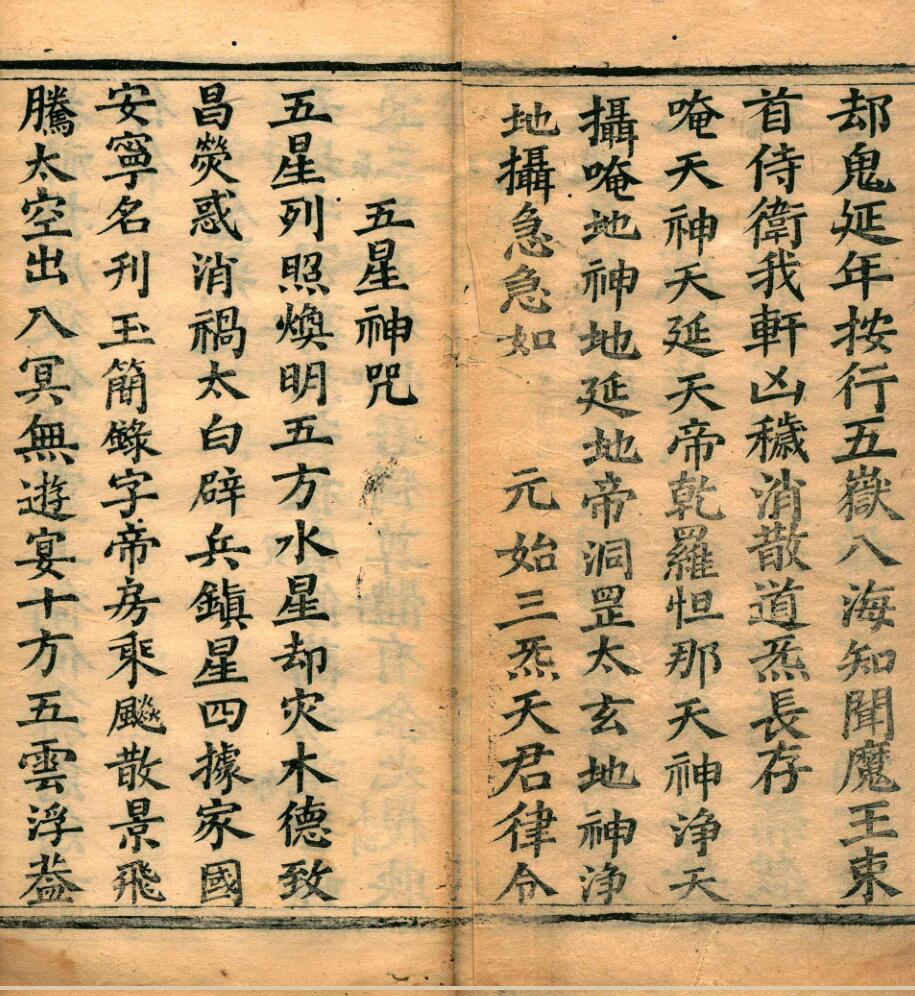 却鬼延年按行五嶽八海知聞魔王束
首侍衛我軒凶穢消散道炁長存
唵天神天延天帝乾羅怛那天神浄天
攝唵地神地延地帝洞罡太玄地神浄
地攝急急如 元始三炁天君律令
五星神咒
五星列照煥明五方水星却灾木德致
昌熒惑消禍太白辟兵鎮星四據家國
安寧名刋玉簡錄字帝房乘飈散景飛
騰太空出入冥無遊宴十方五雲浮盖